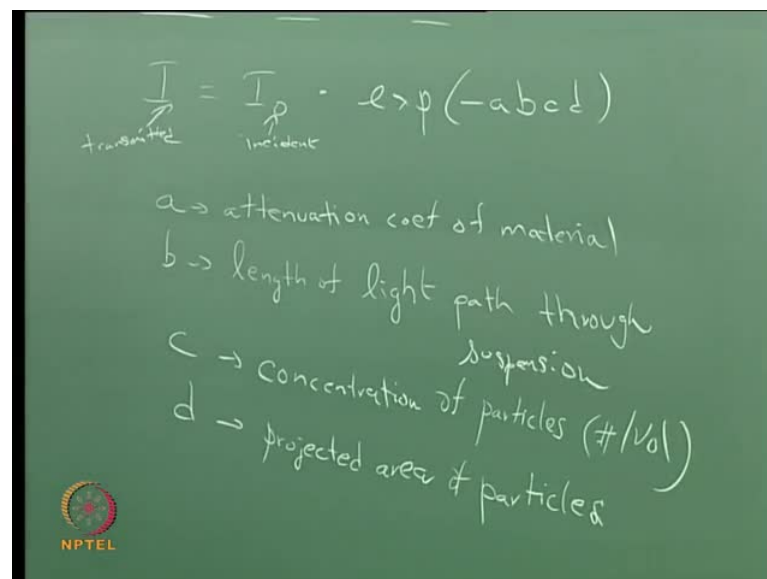 I = I₀ · exp(-abcd)
transmitted incident
a → attenuation coef of material
b → length of light path through
suspension
c → concentration of particles (#/Vol)
d → projected area of particles
NPTEL